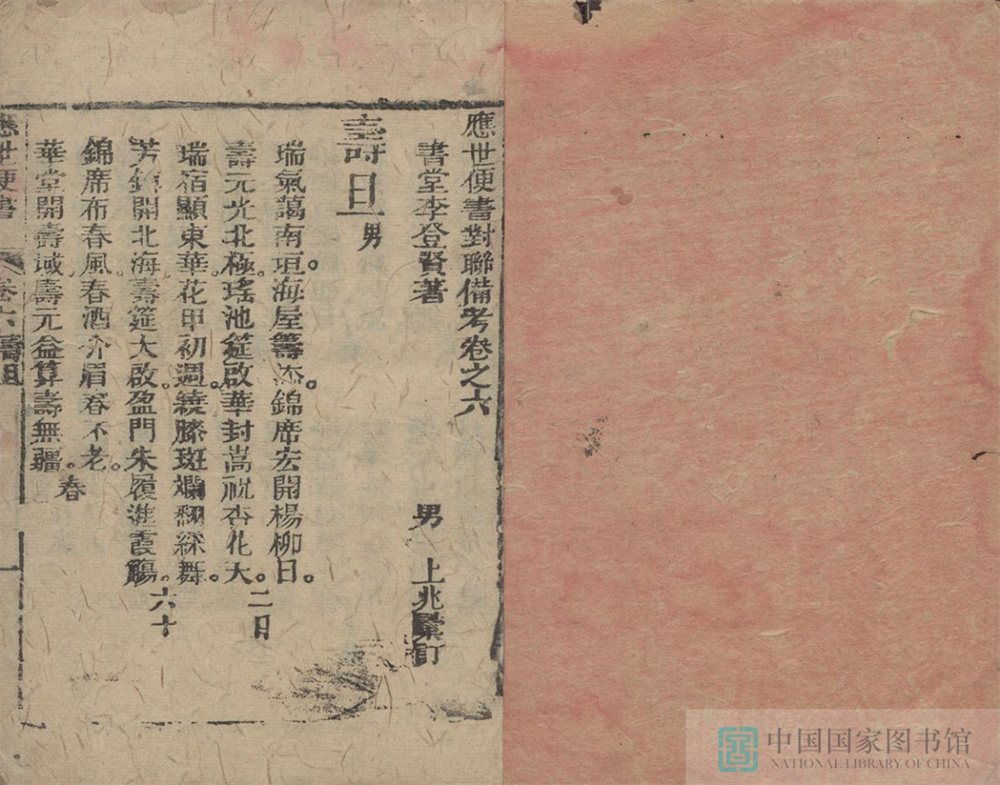 應世便書對聯備考卷之六
書堂李登賢著　男　上兆彙訂
壽旦男
瑞氣藹南垣。海屋籌添。錦席宏開楊柳日。
壽元光北極。瑤池筵啟。華封嵩祝杏花天。二日
瑞宿顯東華。花甲初週。繞膝斑斕翻綵舞。
芳筵開北海。壽筵大啟。盈門朱履進霞觴。六十
錦席布春風。春酒介眉春不老。
華堂開壽域。壽元益算壽無疆。春
應世便書　卷六　壽旦　一
中国国家图书馆
NATIONAL LIBRARY OF CHINA